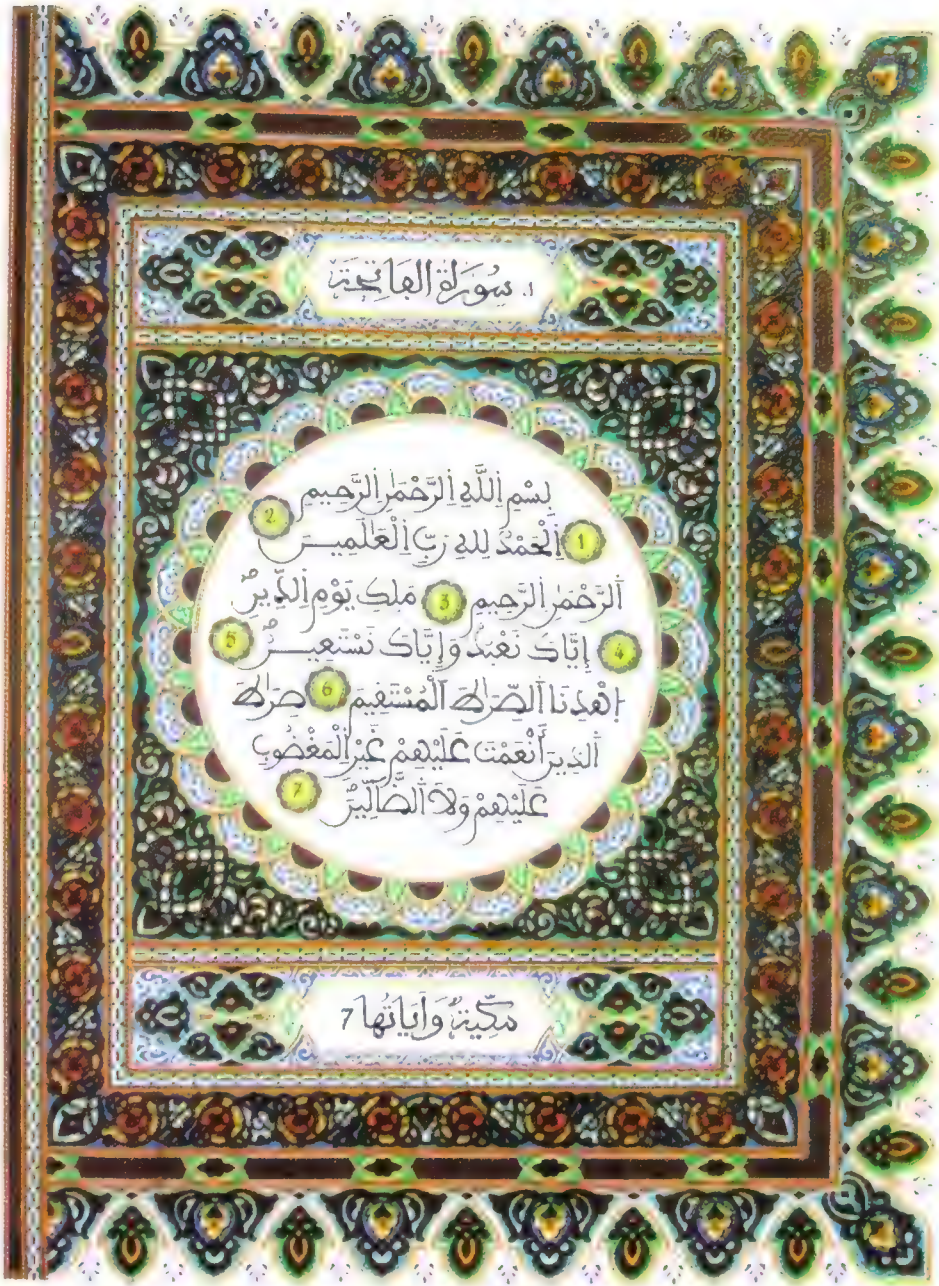 1. سُورَةُ الْفَاتِحَةِ
بِسْمِ اِللَّهِ اِلرَّحْمَٰنِ اِلرَّحِيمِ
1 اَلْحَمْدُ لِلهِ رَبِّ اِلْعَٰلَمِينَ 2
اَلرَّحْمَٰنِ اِلرَّحِيمِ 3 مَلِكِ يَوْمِ اِلدِّينِ
4 إِيَّاكَ نَعْبُدُ وَإِيَّاكَ نَسْتَعِينُ 5
اِهْدِنَا اَلصِّرَٰطَ اَلْمُسْتَقِيمَ 6 صِرَٰطَ
اَلذِينَ أَنْعَمْتَ عَلَيْهِمْ غَيْرِ اِلْمَغْضُوبِ
عَلَيْهِمْ وَلَا اَلضَّآلِّينَ 7
مَكِّيَّةٌ وَآيَاتُهَا 7